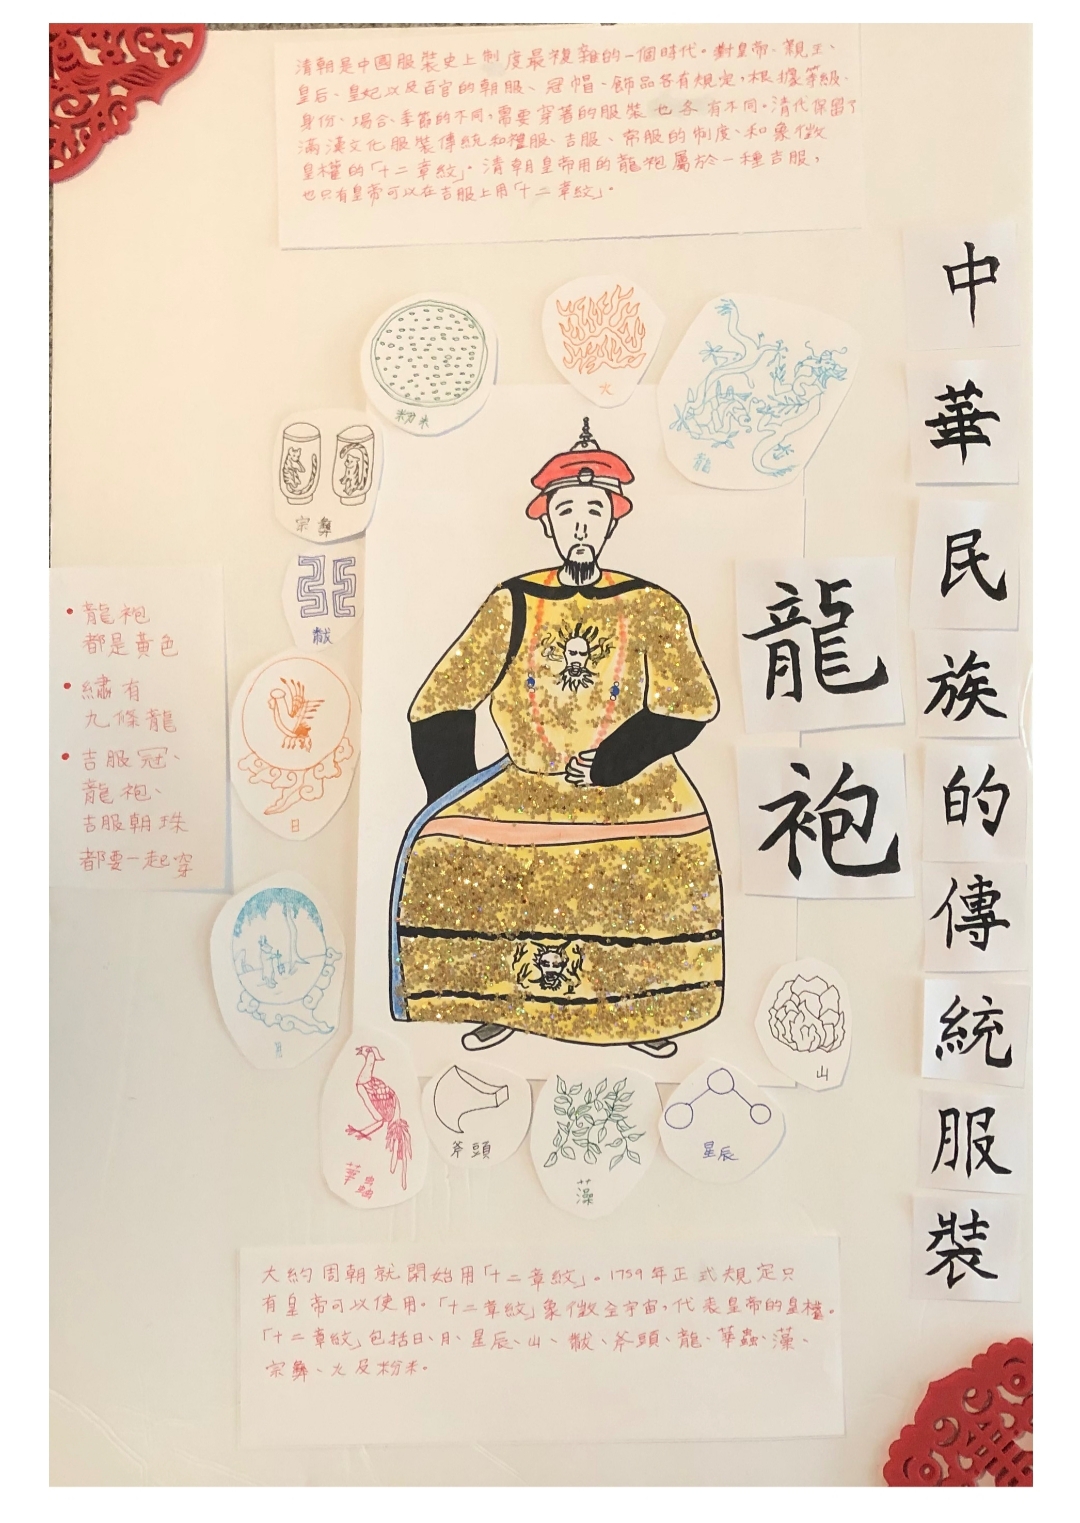 中華民族的傳統服裝
龍袍
清朝是中國服裝史上制度最複雜的一個時代。對皇帝、親王、
皇后、皇妃以及百官的朝服、冠帽、飾品各有規定，根據等級、
身份、場合、季節的不同，需要穿著的服裝也各有不同。清代保留了
滿漢文化服裝傳統和禮服、吉服、常服的制度、和象徵
皇權的「十二章紋」。清朝皇帝用的龍袍屬於一種吉服，
也只有皇帝可以在吉服上用「十二章紋」。
粉米
火
龍
宗彝
黻
日
月
華蟲
斧頭
藻
星辰
山
• 龍袍
都是黃色
• 繡有
九條龍
• 吉服冠、
龍袍、
吉服朝珠
都要一起穿
大約周朝就開始用「十二章紋」。1759年正式規定只
有皇帝可以使用。「十二章紋」象徵全宇宙，代表皇帝的皇權。
「十二章紋」包括日、月、星辰、山、黻、斧頭、龍、華蟲、藻、
宗彝、火及粉米。